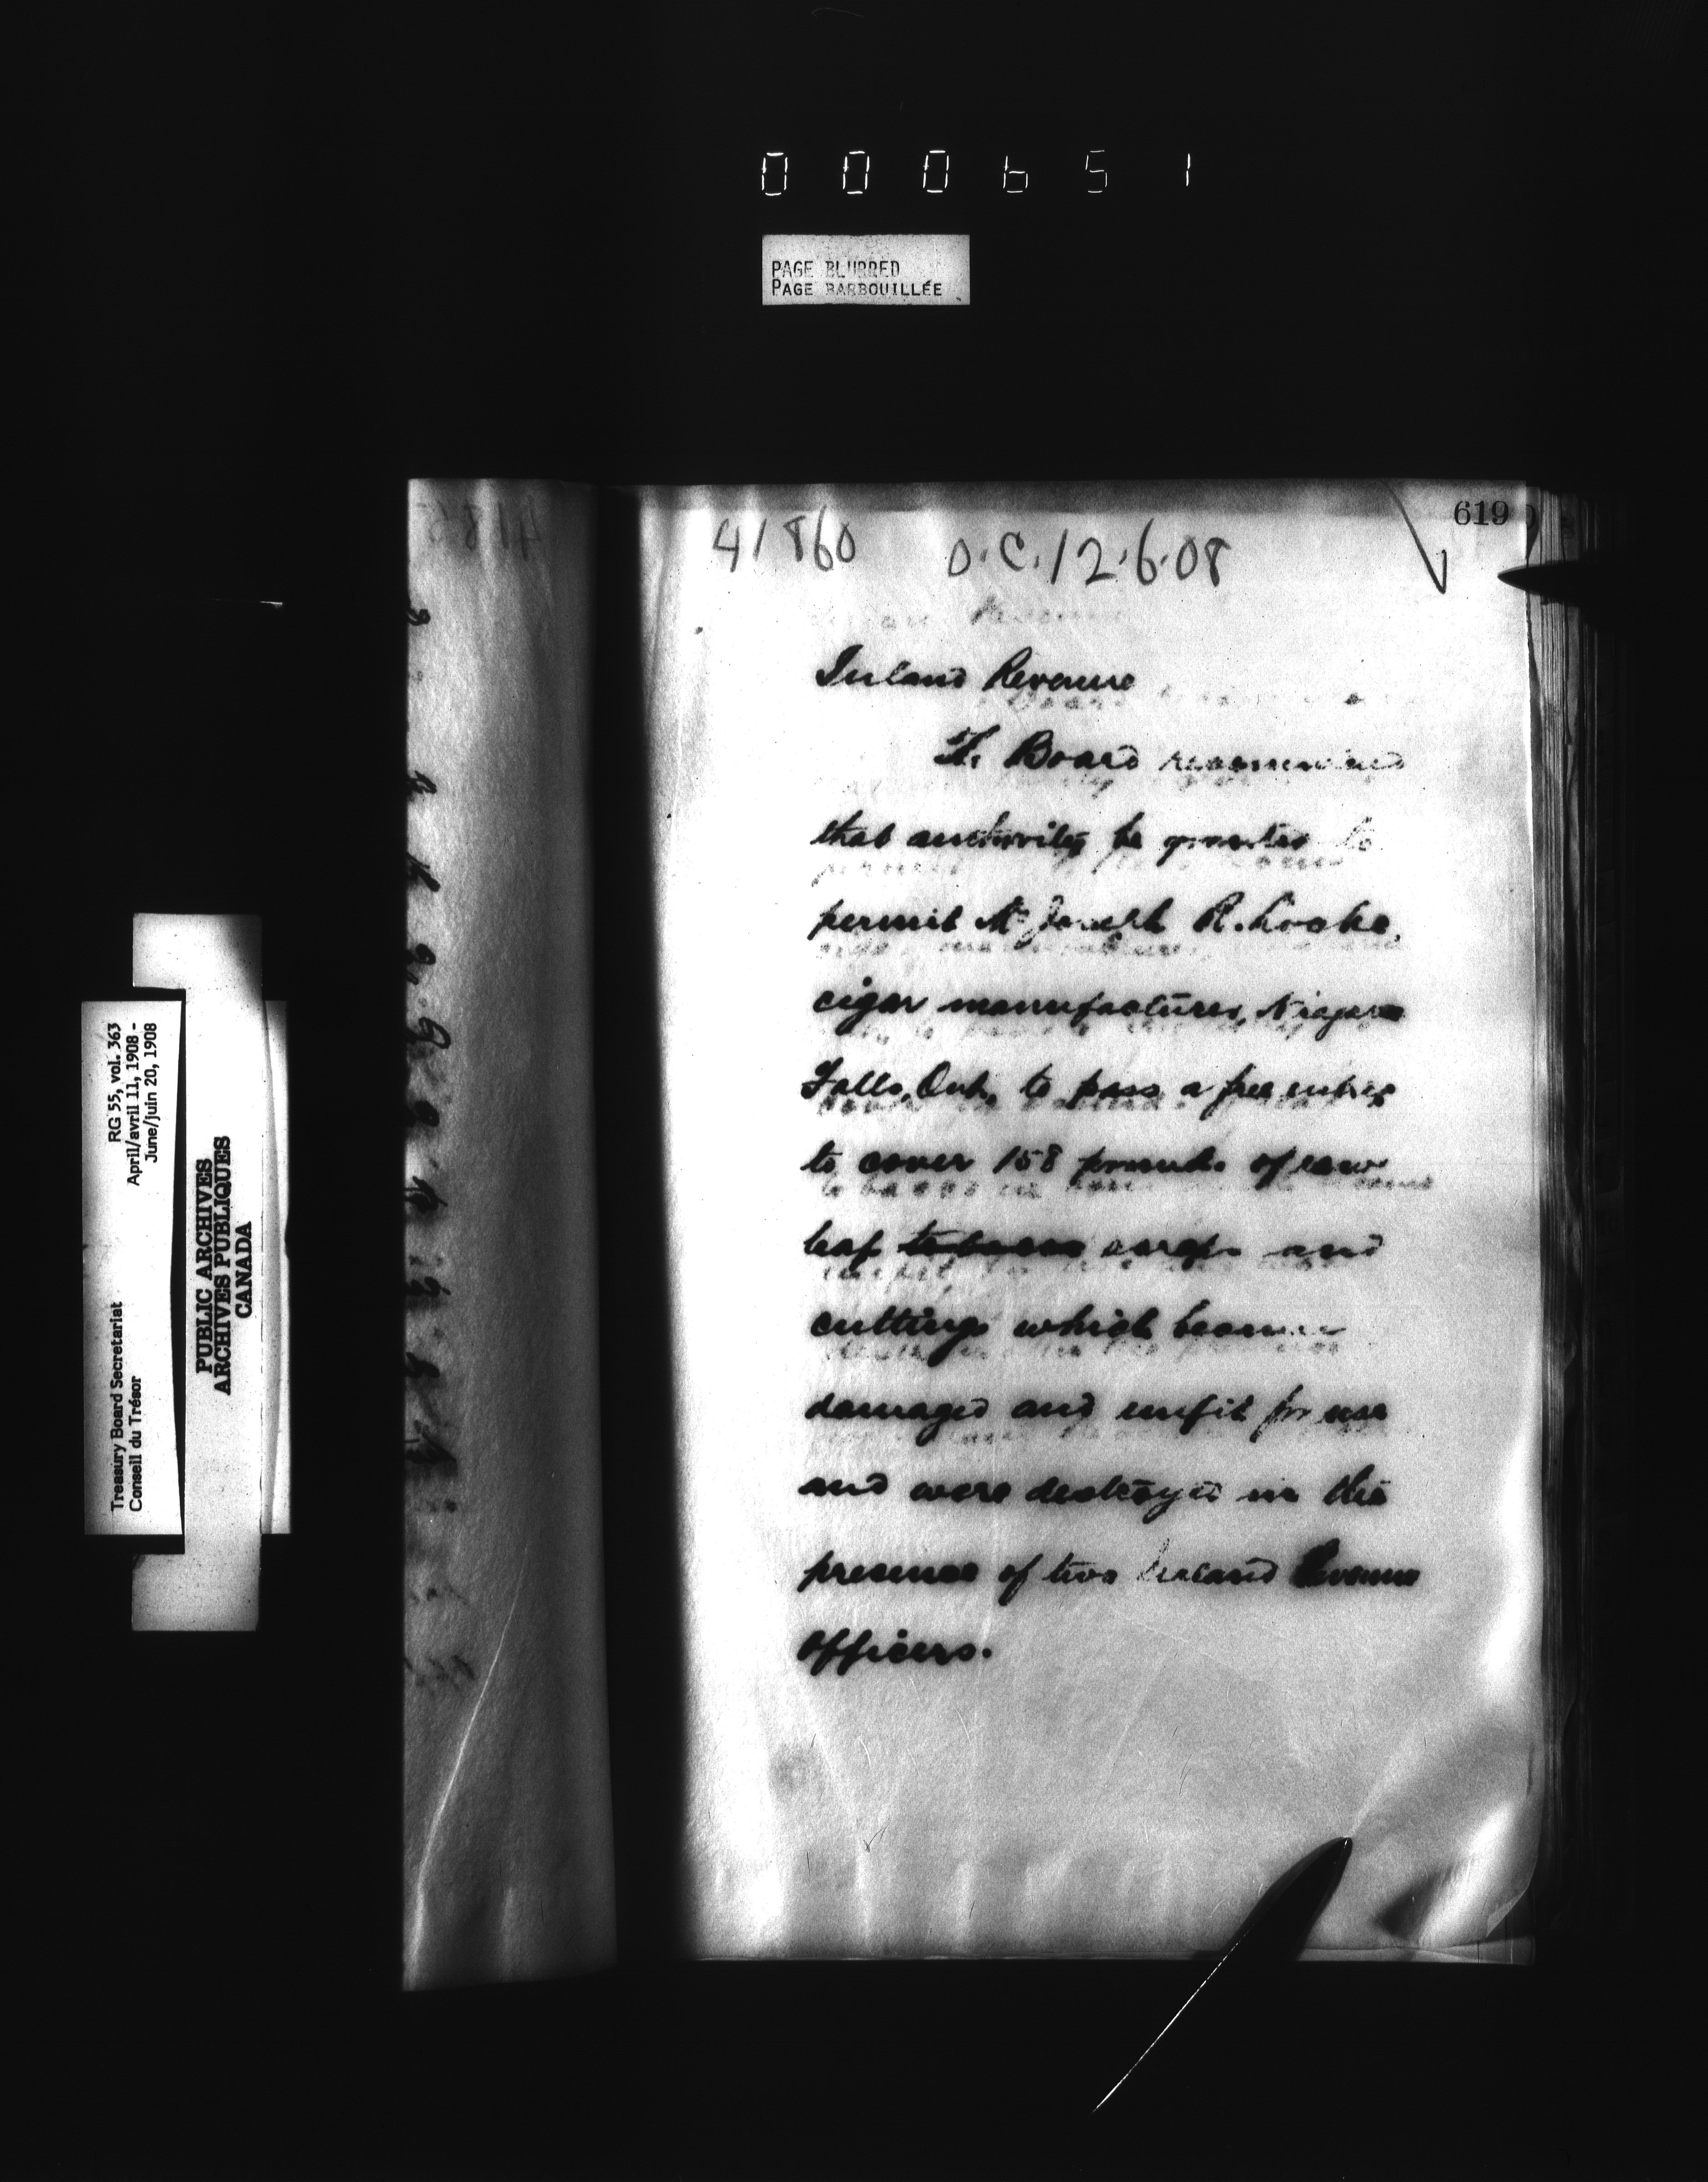 000651
PAGE BLURRED
PAGE BARBOUILLÉE
619
41860 O.C. 12.6.08
Inland Revenue
The Board recommend
that authority be granted to
permit Mr Joseph R. Locke,
cigar manufacturer, Niagara
Falls, Ont., to pass a free entry
to cover 158 pounds of raw
leaf tobacco scraps and
cuttings which became
damaged and unfit for use
and were destroyed in the
presence of two Inland Revenue
officers.
Treasury Board Secretariat
Conseil du Trésor
RG 55, vol. 363
April/avril 11, 1908 -
June/juin 20, 1908
PUBLIC ARCHIVES
ARCHIVES PUBLIQUES
CANADA